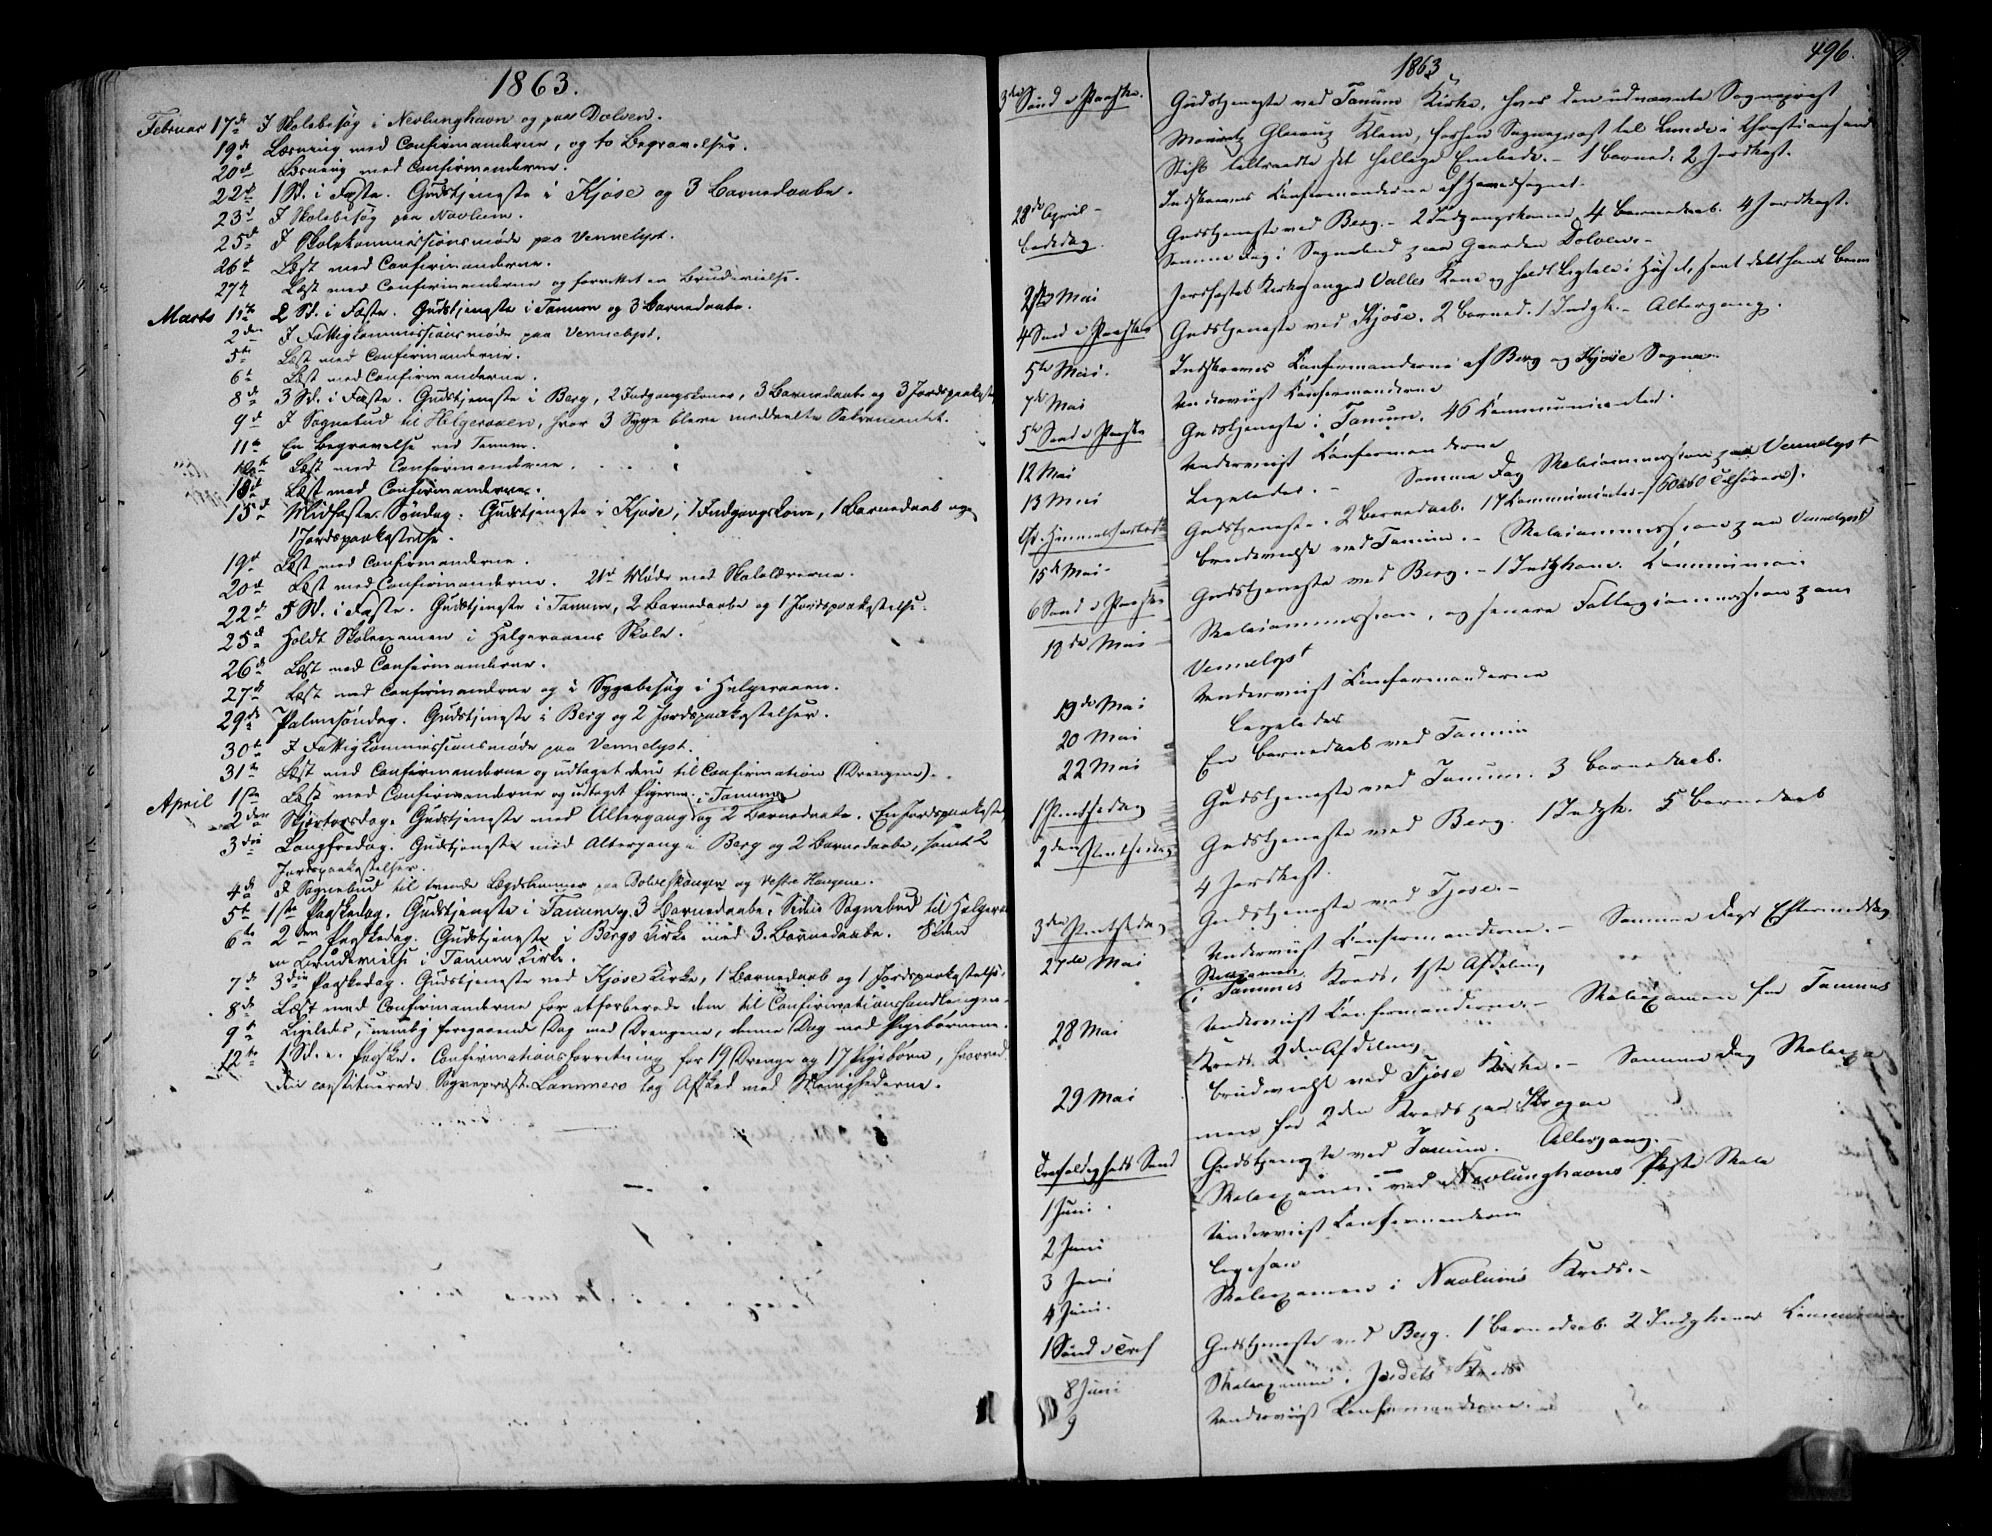 1863.
Februar 17de I Skolebesøg i Nevlunghavn og paa Dolven.
19de Læsning med Confirmanderne, og to Begravelser.
20de Læsning med Confirmanderne.
22de 1 Sd. i Faste. Gudstjeneste i Kjose og 3 Barnedaabe.
23de I Skolebesøg paa Navlum.
25de I Skolekommissionsmøde paa Vennelyst.
26de Læst med Confirmanderne.
27de Læst med Confirmanderne og forrettet en Brudevielse.
Marts 1ste 2 Sd. i Faste. Gudstjeneste i Tanum og 3 Barnedaabe.
2den I Fattigkommissionsmøde paa Vennelyst.
5te Læst med Confirmanderne.
6te Læst med Confirmanderne.
8de 3 Sd. i Faste. Gudstjeneste i Berg, 2 Indgangskoner, 3 Barnedaabe og 3 Jordspaakaste
9de I Sognebud til Helgeraaen, hvor 3 Syge bleve meddeelte Sakramentet.
11te En Begravelse ved Tanum.
Læst med Confirmanderne.
13de Læst med Confirmanderne.
15de Midfaste Søndag. Gudstjeneste i Kjose, 1 Indgangskone, 1 Barnedaab og
1 Jordspaakastelse.
19de Læst med Confirmanderne.
20de Læst med Confirmanderne. 21de Møde med Skolelærerne.
22de 5 Sd. i Faste. Gudstjeneste i Tanum, 2 Barnedaabe og 1 Jordspaakastelse.
25de Holdt Skoleexamen i Helgeraaens Skole.
26de Læst med Confirmanderne.
27de Læst med Confirmanderne og i Sygebesøg i Helgeraaen.
29de Palmesøndag. Gudstjeneste i Berg og 2 Jordspaakastelser.
30te I Fattigkommissionsmøde paa Vennelyst.
31te Læst med Confirmanderne og udtaget dem til Confirmation (Drengene).
April 1ste Læst med Confirmanderne og udtaget Pigerne.
2den Skjærtorsdag. Gudstjeneste med Altergang i Tanum og 2 Barnedaabe. En Jordspaakaste
3die Langfredag. Gudstjeneste med Altergang i Berg og 2 Barnedaabe, samt 2
Jordspaakastelser.
4de I Sognebud til tvende Lægdslemmer paa Dolveskougen og Vestre Haugene.
5te 1ste Paaskedag. Gudstjeneste i Tanum og 3 Barnedaabe. Siden Sognebud til Helgeraa
6te 2den Paaskedag. Gudstjeneste i Bergs Kirke med 3 Barnedaabe. Siden
en Brudevielse i Tanum Kirke.
7de 3die Paaskedag. Gudstjeneste ved Kjose Kirke, 1 Barnedaab og 1 Jordspaakastelse.
8de Læst med Confirmanderne for at forberede dem til Confirmationshandlingen.
9de Ligeledes, nemlig foregaaende Dag med Drengene, denne Dag med Pigebørnene.
12te 1 Sd. e. Paaske. Confirmationsforretning for 19 Drenge og 17 Pigebørn, hvorved
den constituerede Sognepræst Lammers tog Afsked med Menighederne.
496.
1863
3die Sønd e Paaske. Gudstjeneste ved Tanum Kirke, hvor den udnævnte Sognepræst
Mouritz Klem, forhen Sognepræst til Lunde i Christiansand
Stift tiltraadte det hellige Embede. - 1 Barned. 2 Jordkast.
28de April - Indskreves Konfirmanderne af Hovedsognet.
Bededag. Gudstjeneste ved Berg. - 2 Indgangskoner, 4 Barnedaab. 4 Jordkast.
Samme Dag i Sognebud paa Gaarden Dolven -
2den Mai Jordfæstet Kirkesanger Valles Kone og holdt Ligtale i Huset, samt døbt hans Barn
4 Sønd e Paaske Gudstjeneste ved Kjose. 2 Barned. 1 Indgk. - Altergang.
5te Mai. Indskreves Konfirmanderne af Berg og Kjose Sogne.
7de Mai Underviist Konfirmanderne
5te Sønd e Paaske Gudstjeneste i Tanum. 46 Kommunicanter.
12 Mai Underviist Konfirmanderne
13 Mai Ligeledes. - Samme Dag Skolecommission paa Vennelyst
Himmelfartsd. Gudstjeneste. 2 Barnedaab. 17 Kommunicanter
15de Mai - Brudevielse ved Tanum. - Skolecommission paa Vennelyst
6 Sønd e Paaske Gudstjeneste ved Berg. - 1 Indgkone. Kommunion
18de Mai Skolecommission, og senere Fattigcommission paa
Vennelyst
19de Mai Underviist Konfirmanderne
20 Mai Ligeledes
22 Mai En Barnedaab ved Tanum
1 Pintsedag Gudstjeneste ved Tanum. 3 Barnedaab.
2den Pintsedag Gudstjeneste ved Berg. 1 Indgk. 5 Barnedaab
4 Jordkast.
3die Pintsedag Gudstjeneste ved Tjose. -
27de Mai Underviist Konfirmanderne. - Samme Dags Eftermiddag
Skoleexamen i Tanums Kreds, 1ste Afdeling
28 Mai Underviist Konfirmanderne. - Skoleexamen for Tanums
Kreds 2den Afdeling
29 Mai Brudevielse ved Tjose Kirke. - Samme Dag Skoleexa
men for 2den Kreds paa Skogen
Trefoldigheds Sønd Gudstjeneste ved Tanum. Altergang. -
1 Juni. Skoleexamen ved Nevlunghavns faste Skole
2 Juni Underviist Konfirmanderne
3 Juni Ligesaa
4 Juni. Skoleexamen i Navlums Kreds. -
1 Sønd e Tref Gudstjeneste ved Berg. 1 Barnedaab. 2 Indgkoner Kommunion
8 Juni Skoleexamen i Jordets Kreds
9 Underviist Konfirmanderne.